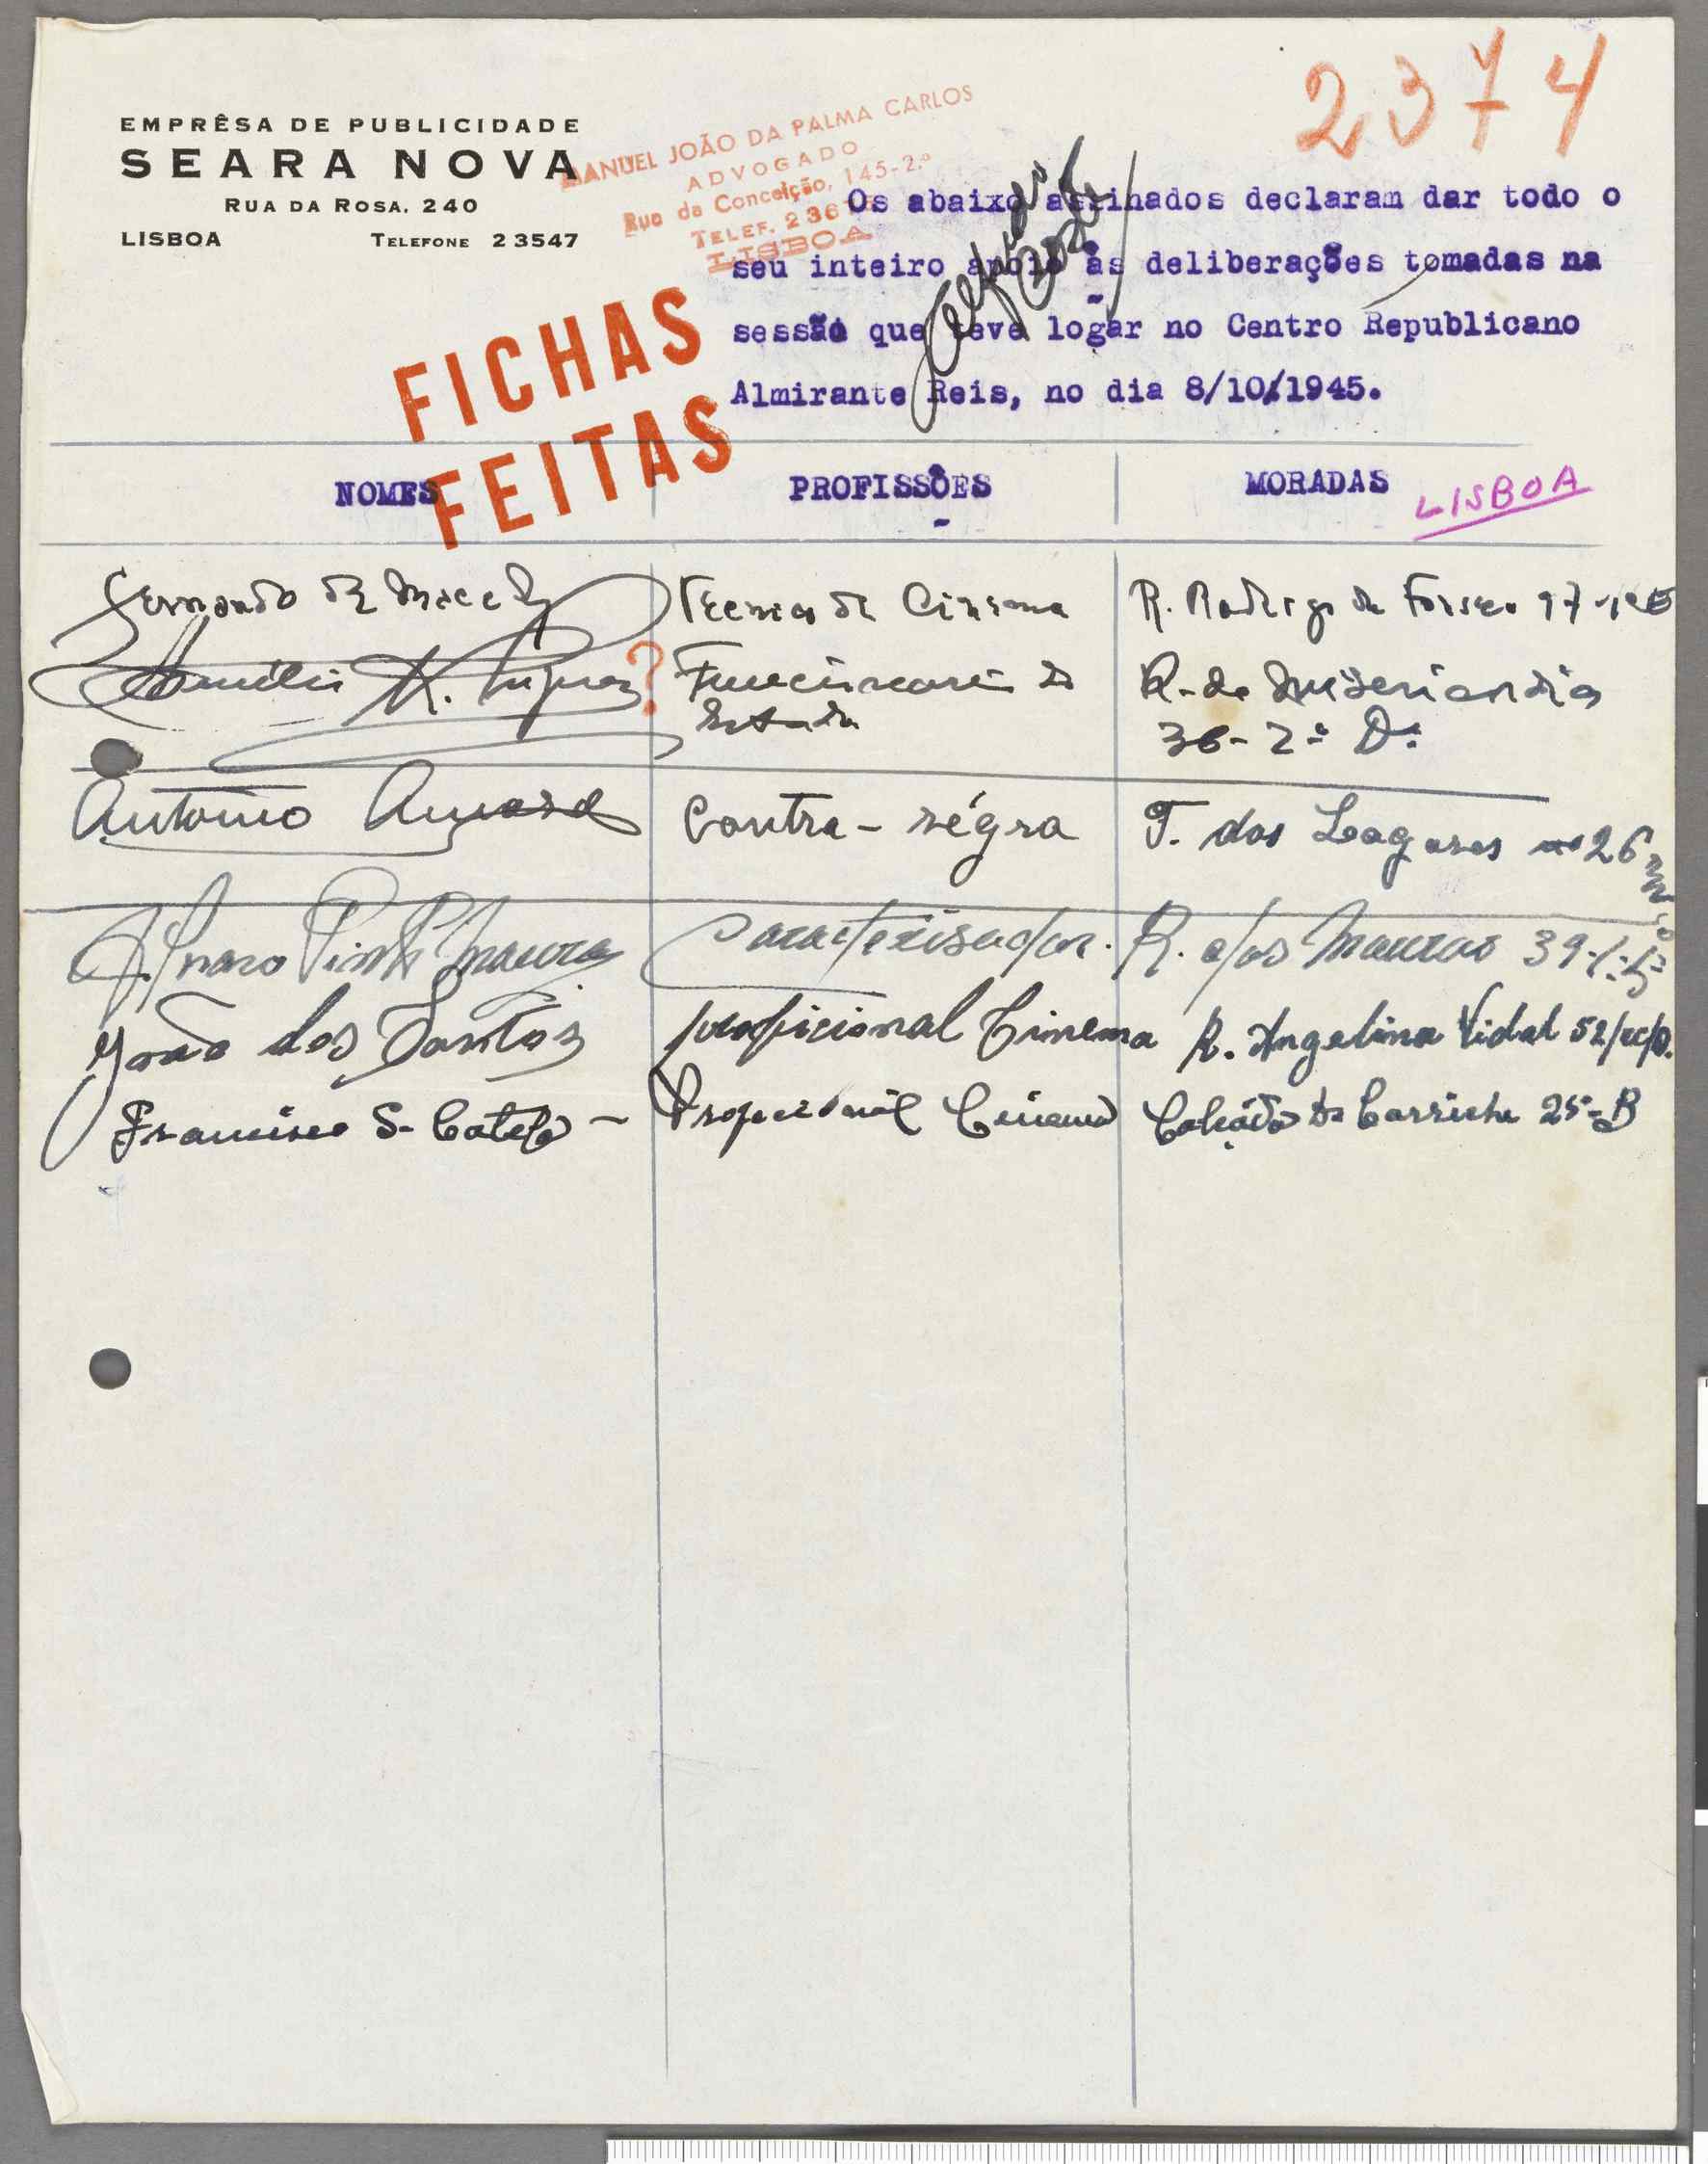 2374
EMPRÊSA DE PUBLICIDADE
SEARA NOVA
RUA DA ROSA, 240
LISBOA TELEFONE 23547
MANUEL JOÃO DA PALMA CARLOS
ADVOGADO
Rua da Conceição, 145-2.º
TELEF. 2367
LISBOA
Os abaixo assinados declaram dar todo o
seu inteiro apoio às deliberações tomadas na
sessão que teve logar no Centro Republicano
Almirante Reis, no dia 8/10/1945.
FICHAS
FEITAS
NOMES PROFISSÕES MORADAS LISBOA
Fernando de Macedo Tecnico de Cinema R. Rodrigo da Fonseca 97
? Funcionario do R. da Misericordia
Estado 36-2º D.
Antonio Amaral Contra-régra T. dos Lagares nº 26
Alvaro Pinto Moura Caracterisador. R. dos Mouros 39-1º
João dos Santos profissional Cinema R. Angelina Vidal 52
Francisco S. Profissional Cinema Calçada de Carriche 25-B